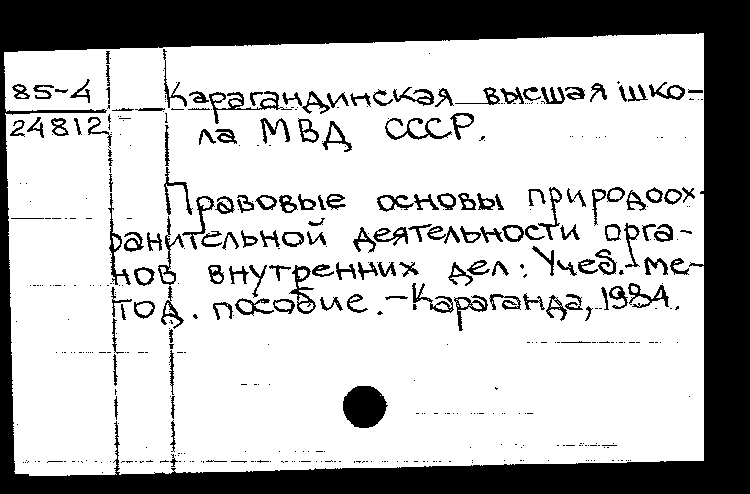 85-4
24812
Карагандинская высшая шко-
ла МВД СССР.
Правовые основы природоох-
ранительной деятельности орга-
нов внутренних дел: Учеб.-ме-
тод. пособие. - Караганда, 1984.